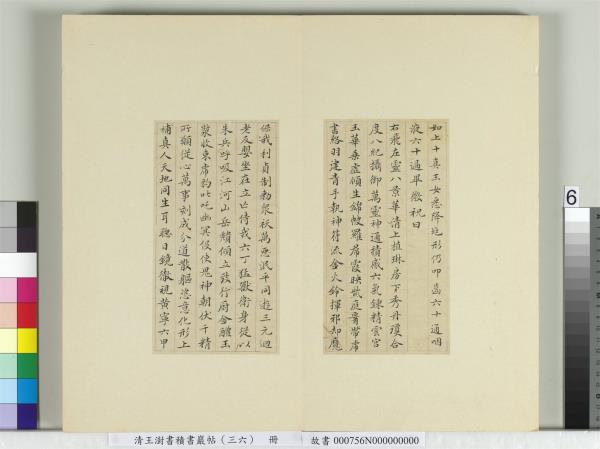 如上十真玉女悉降垝形仍叩齒六十通咽
液六十過畢微祝曰
右飛左靈八景華清上植琳房下秀丹瓊合
度八紀攝御萬靈神通積感六氣鍊精雲宮
玉華乘虛順生錦帔羅裙霞映紫庭腰帶虎
書絡羽建青手執神符流金火鈴揮邪却魔
保我利貞制勒眾祅萬惡泯平同遊三元迴
老反嬰坐在立亡侍我六丁猛獸衛身從以
朱兵呼吸江河山岳頹傾立致行廚金醴玉
漿收束虎豹叱吒幽冥役使鬼神朝伏千精
所願從心萬事剋成分道散軀恣意化形上
補真人天地同生耳聰目鏡徹視黃寧六甲
清王澍書積書巖帖（三六） 冊
故書 000756N000000000
6